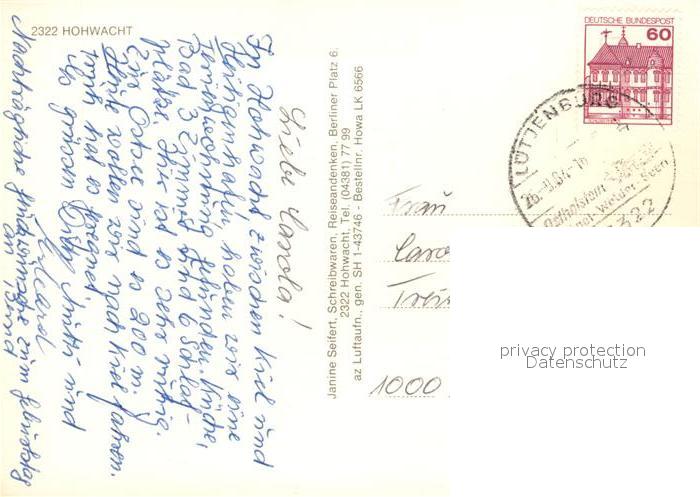 2322 HOHWACHT
Liebe Carola!
In Hohwacht zwischen Kiel und
Heiligenhafen, haben wir eine
Ferienwohnung gefunden. Küche,
Bad 3 Zimmer und 6 Schlaf-
plätze. Hier ist es sehr ruhig.
Zur Ostsee sind es 200 m.
Heute wollen wir nach Kiel fahren.
hat es geregnet.
Es grüssen Dich Mutti und
Nachträgliche Glückwünsche zum Geburtstag
an Bernd
Janine Seifert, Schreibwaren, Reiseandenken, Berliner Platz 6,
2322 Hohwacht, Tel. (04381) 77 99
az Luftaufn., gen. SH 1-43746 - Bestellnr. Howa LK 6566
DEUTSCHE BUNDESPOST
60
LÜTJENBURG
2322
Frau
Caro
1000
privacy protection
Datenschutz